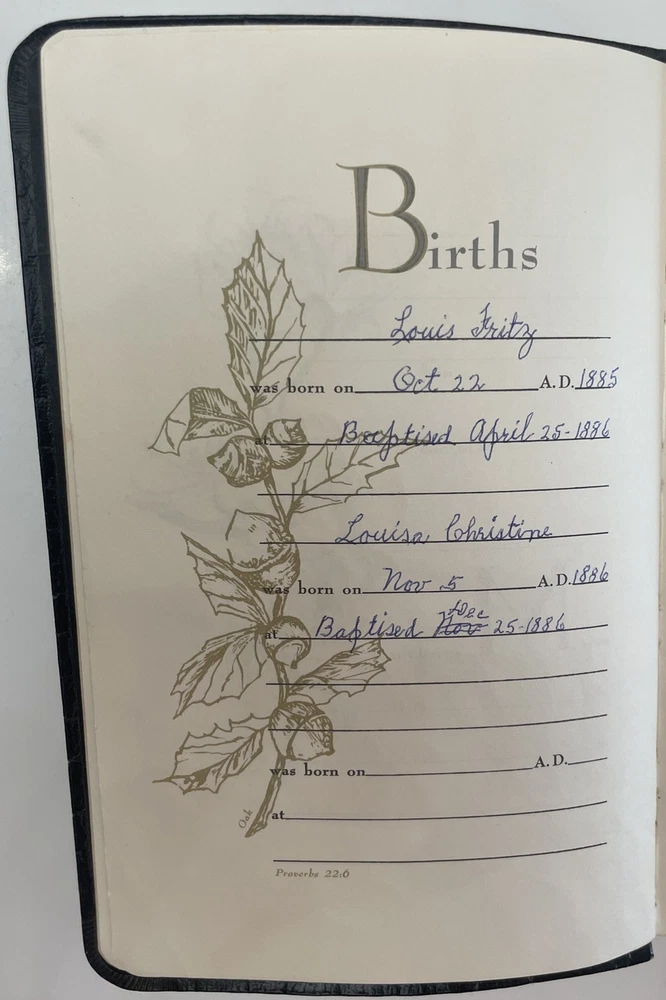 Births
Louis Fritz
was born on Oct 22 A.D. 1885
at Baptised April 25-1886
Louisa Christine
was born on Nov 5 A.D. 1886
at Baptised Nov Dec 25-1886
was born on A.D.
at
Oak
Proverbs 22:6